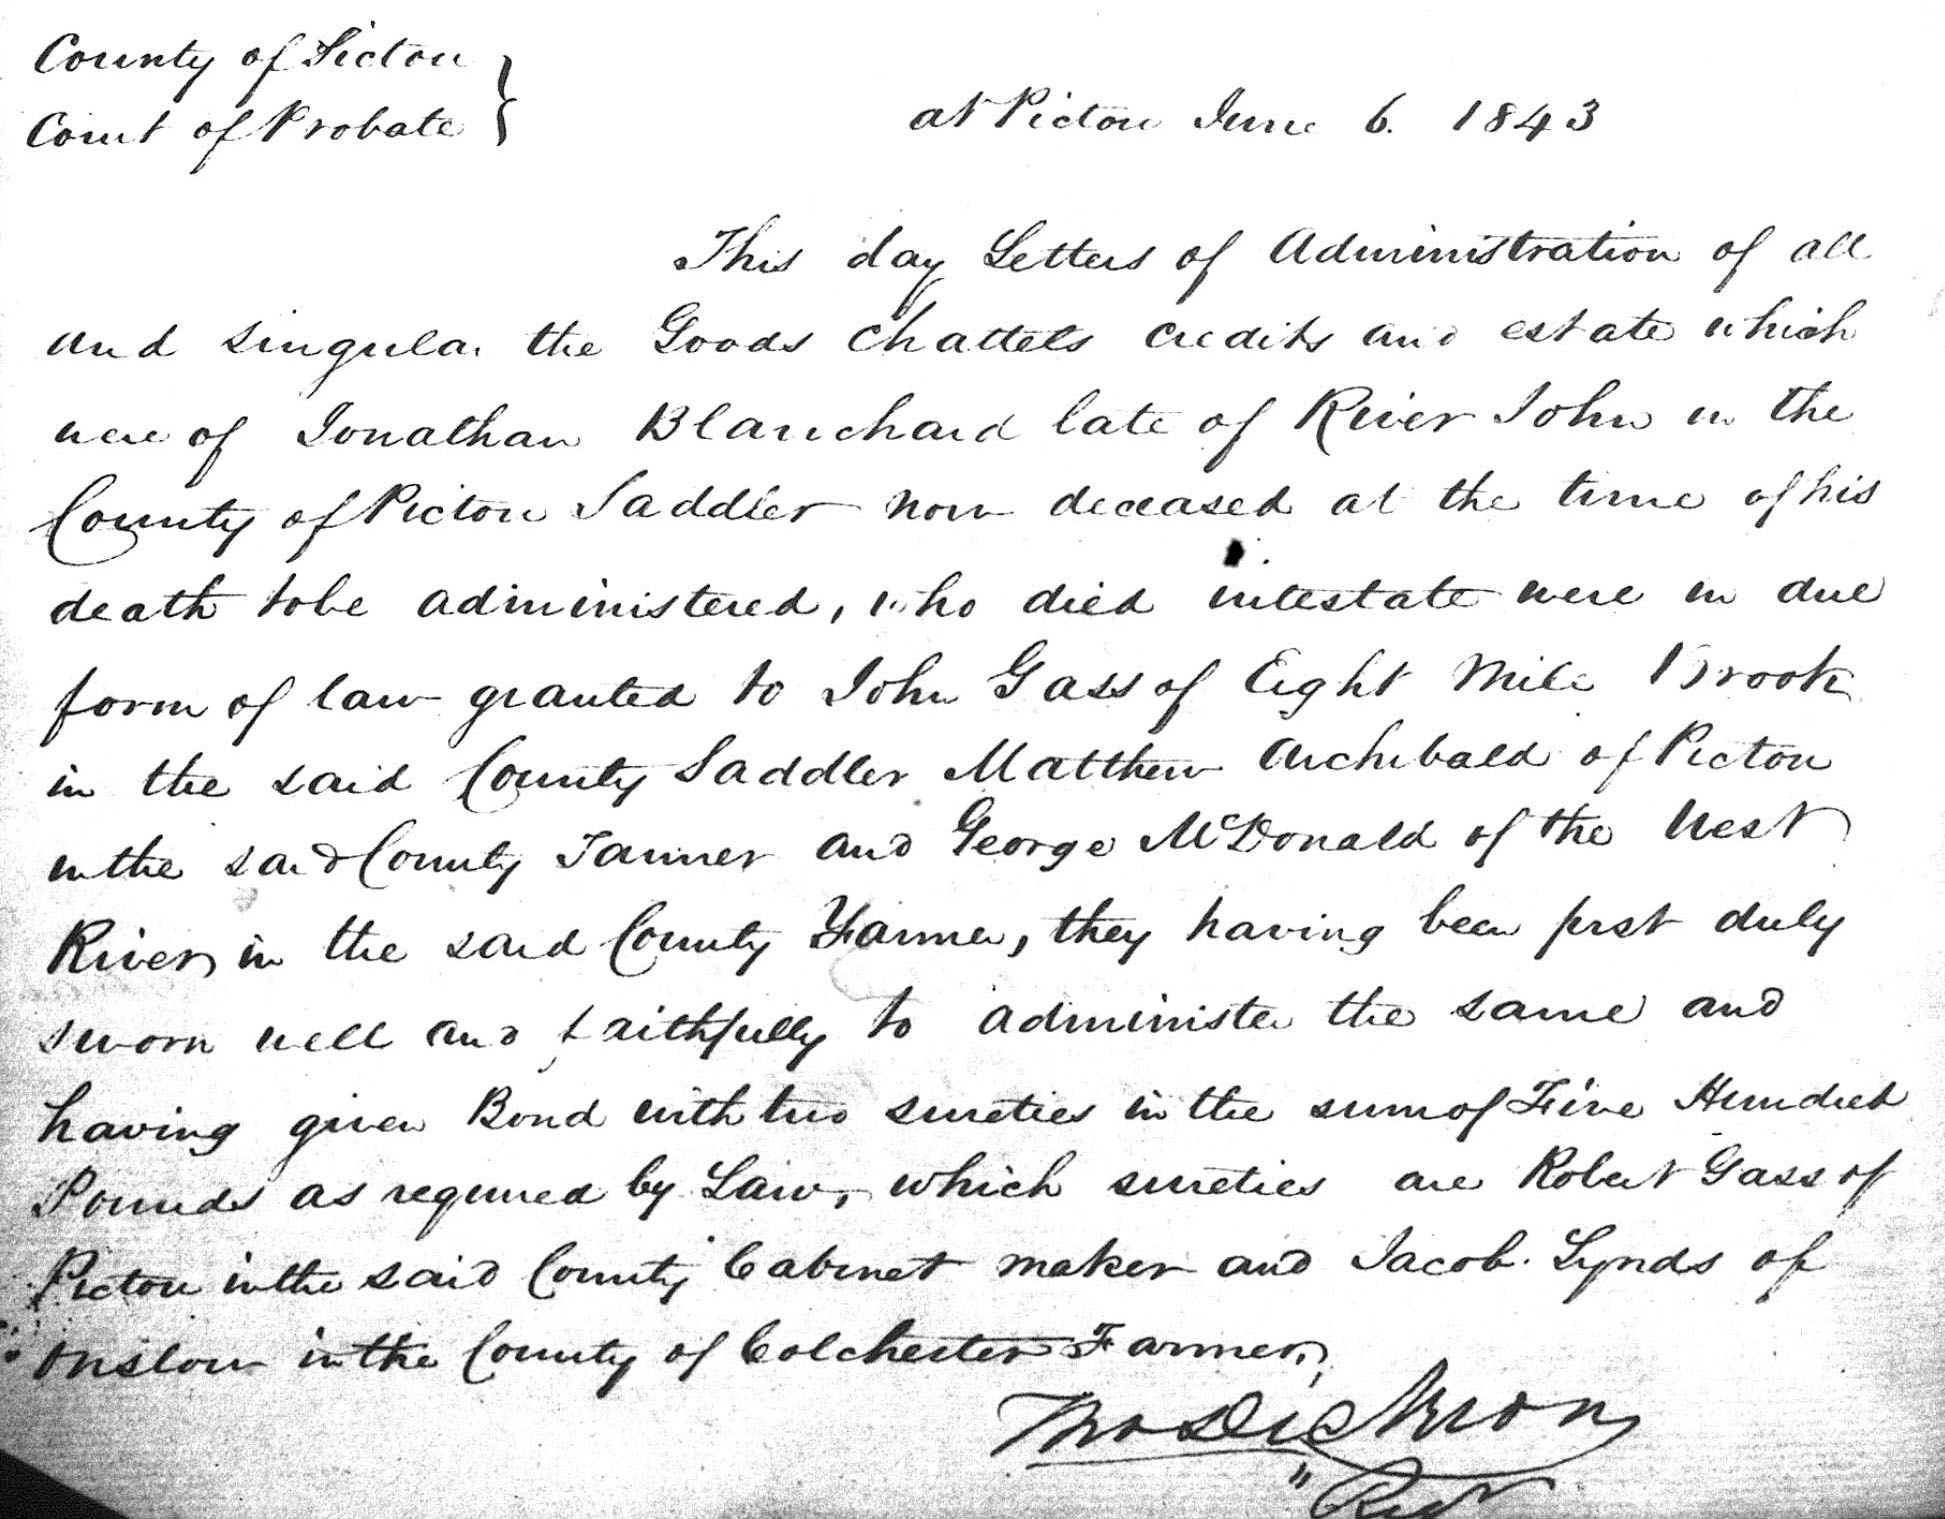 County of Pictou }
Court of Probate }
at Pictou June 6. 1843
This day Letters of Administration of all
and singular the Goods Chattels credits and estate which
were of Jonathan Blanchard late of River John in the
County of Pictou Saddler now deceased at the time of his
death to be administered, who died intestate were in due
form of law granted to John Gass of Eight Mile Brook
in the said County Saddler Matthew Archibald of Pictou
in the said County Tanner and George McDonald of the West
River in the said County Farmer, they having been first duly
sworn well and faithfully to administer the same and
having given Bond with two sureties in the sum of Five Hundred
Pounds as required by Law, which sureties are Robert Gass of
Pictou in the said County Cabinet maker and Jacob Lynds of
Onslow in the County of Colchester Farmer,
Thos Dickson
Regr